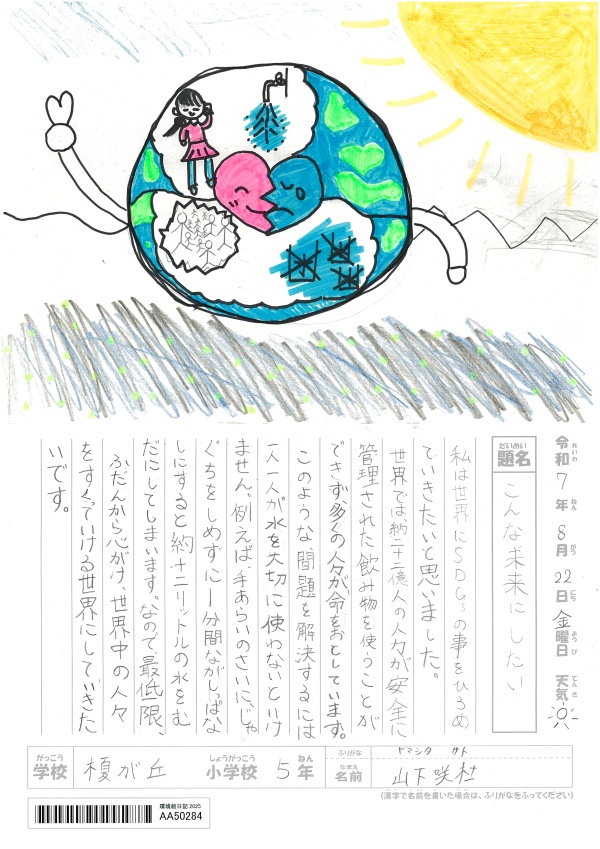 令和7年8月22日金曜日 天気
れいわ ねん がつ にち ようび てんき
だいめい
題名 こんな未来にしたい
私は世界にSDGsの事をひろめ
ていきたいと思いました。
世界では約二十二億人の人々が安全に
管理された飲み物を使うことが
できず、多くの人々が命をおとしています。
このような問題を解決するには
一人一人が水を大切に使わないといけ
ません。例えば、手あらいのさいに、じゃ
ぐちをしめずに1分間ながしっぱな
しにすると約十二リットルの水をむ
だにしてしまいます。なので、最低限、
ふだんから心がけ、世界中の人々
をすくっていける世界にしていきた
いです。
がっこう しょうがっこう ねん
学校 榎が丘 小学校 5年
ふりがな ヤマシタ サト
なまえ
名前 山下咲杜
(漢字で名前を書いた場合は、ふりがなをふってください)
環境絵日記 2025
AA50284